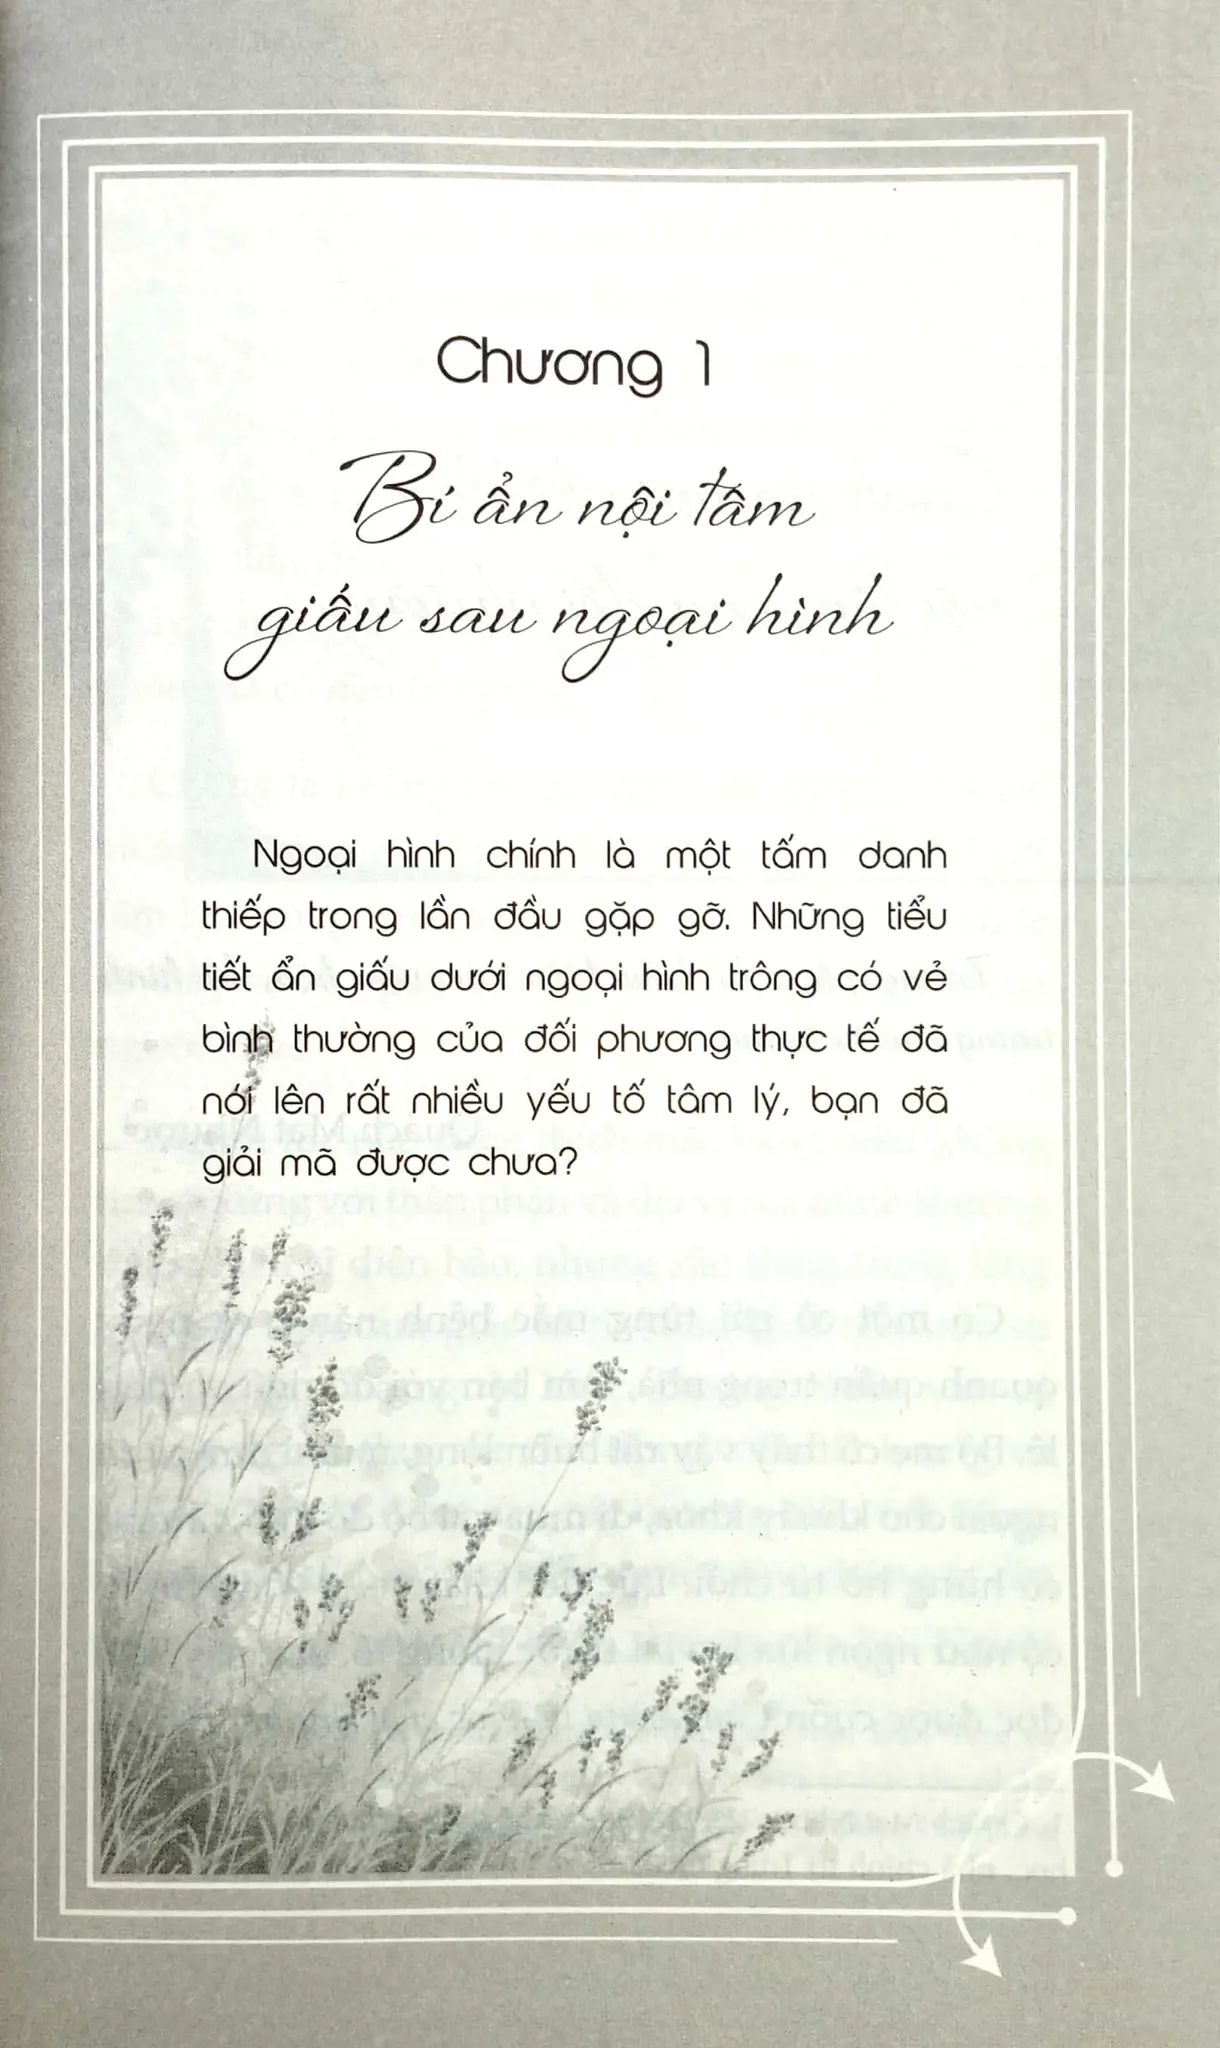 Chương 1
Bí ẩn nội tâm
giấu sau ngoại hình
Ngoại hình chính là một tấm danh
thiếp trong lần đầu gặp gỡ. Những tiểu
tiết ẩn giấu dưới ngoại hình trông có vẻ
bình thường của đối phương thực tế đã
nói lên rất nhiều yếu tố tâm lý, bạn đã
giải mã được chưa?